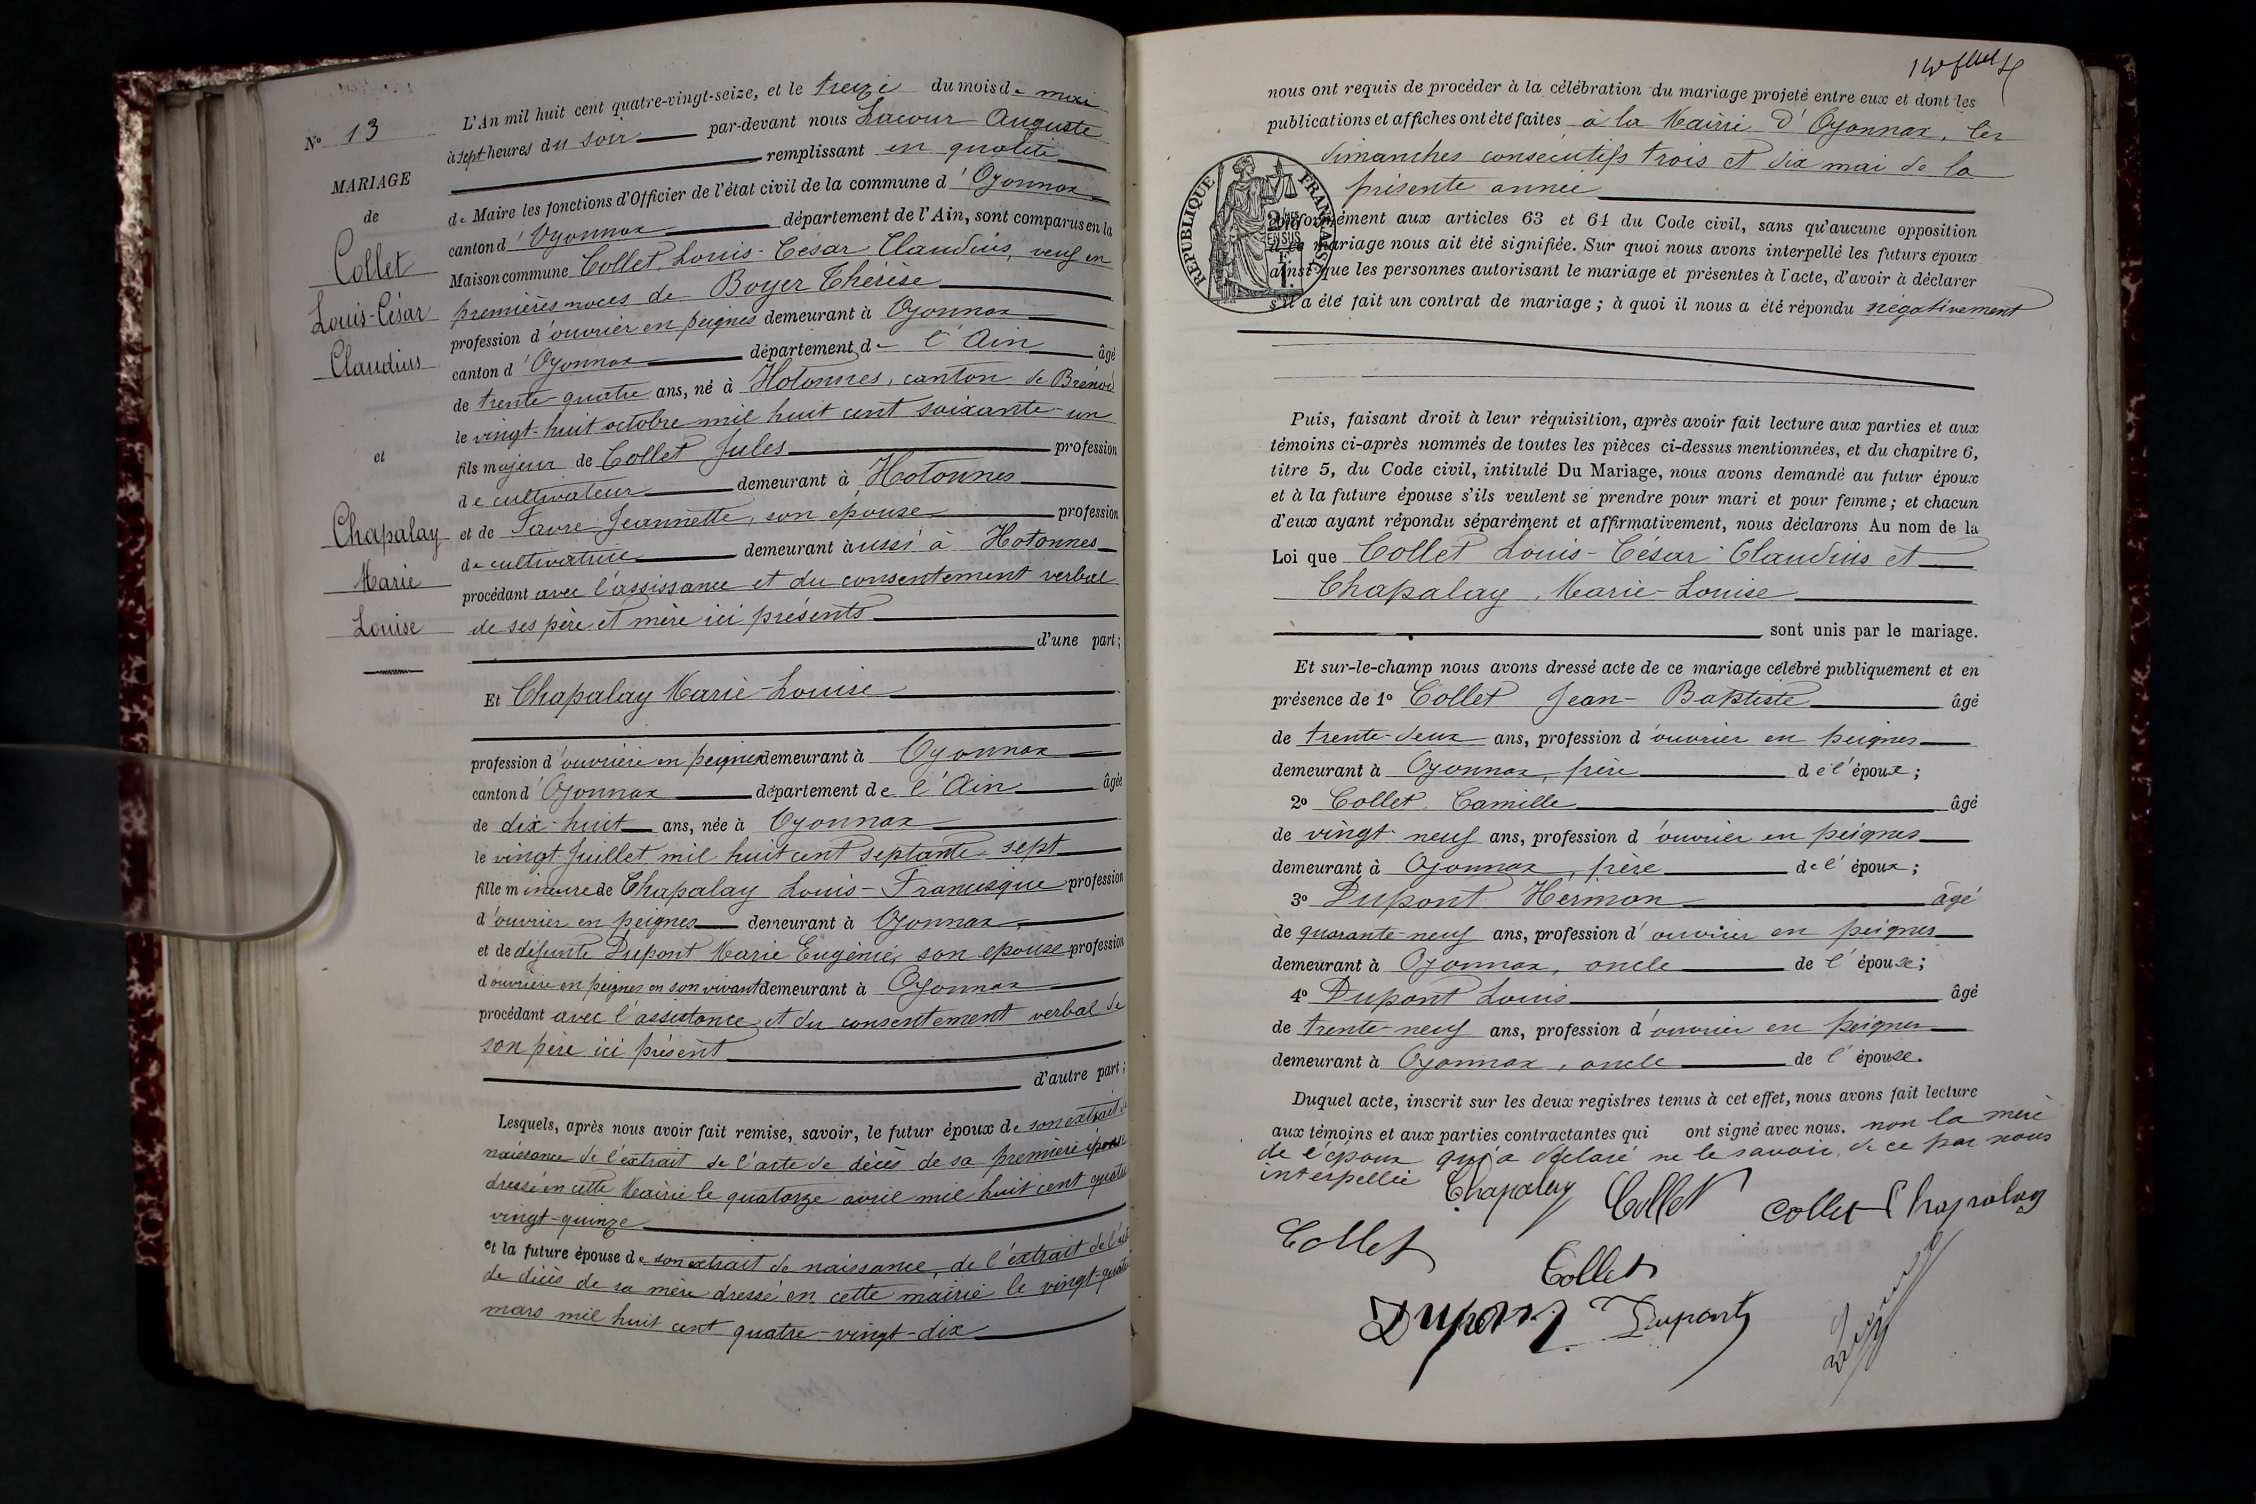 N° 13
MARIAGE
de
Collet
Louis-César
Claudius
et
Chapalay
Marie
Louise
L'An mil huit cent quatre-vingt-seize, et le treize du mois de mai
à sept heures du soir par-devant nous Lacour Auguste
remplissant en qualité
de Maire les fonctions d'Officier de l'état civil de la commune d'Oyonnax
canton d'Oyonnax département de l'Ain, sont comparus en la
Maison commune Collet, Louis-César Claudius, veuf en
premières noces de Boyer Thérèse
profession d'ouvrier en peignes demeurant à Oyonnax
canton d'Oyonnax département de l'Ain âgé
de trente-quatre ans, né à Hotonnes, canton de Brénod
le vingt-huit octobre mil huit cent soixante-un
fils majeur de Collet Jules profession
de cultivateur demeurant à Hotonnes
et de Favre Jeannette, son épouse profession
de cultivatrice demeurant aussi à Hotonnes
procédant avec l'assissance et du consentement verbal
de ses père et mère ici présents
d'une part;
Et Chapalay Marie-Louise
profession d'ouvrière en peignes demeurant à Oyonnax
canton d'Oyonnax département de l'Ain âgée
de dix-huit ans, née à Oyonnax
le vingt Juillet mil huit cent septante-sept
fille mineure de Chapalay Louis-Francisque profession
d'ouvrier en peignes demeurant à Oyonnax
et de défunte Dupont Marie Eugénie, son épouse profession
d'ouvrière en peignes en son vivant demeurant à Oyonnax
procédant avec l'assistance et du consentement verbal de
son père ici présent
d'autre part;
Lesquels, après nous avoir fait remise, savoir, le futur époux de son extrait de
naissance de l'extrait de l'acte de décès de sa première épouse
dressé en cette Mairie le quatorze avril mil huit cent quatre
vingt-quinze
et la future épouse de son extrait de naissance, de l'extrait de l'acte
de décès de sa mère dressé en cette mairie le vingt-quatre
mars mil huit cent quatre-vingt-dix
nous ont requis de procéder à la célébration du mariage projeté entre eux et dont les
publications et affiches ont été faites à la Mairie d'Oyonnax, les
dimanches consécutifs trois et dix mai de la
présente année
RÉPUBLIQUE FRANÇAISE
conformément aux articles 63 et 64 du Code civil, sans qu'aucune opposition
à ce mariage nous ait été signifiée. Sur quoi nous avons interpellé les futurs époux
ainsi que les personnes autorisant le mariage et présentes à l'acte, d'avoir à déclarer
s'il a été fait un contrat de mariage; à quoi il nous a été répondu négativement
Puis, faisant droit à leur réquisition, après avoir fait lecture aux parties et aux
témoins ci-après nommés de toutes les pièces ci-dessus mentionnées, et du chapitre 6,
titre 5, du Code civil, intitulé Du Mariage, nous avons demandé au futur époux
et à la future épouse s'ils veulent se prendre pour mari et pour femme; et chacun
d'eux ayant répondu séparément et affirmativement, nous déclarons Au nom de la
Loi que Collet Louis-César-Claudius et
Chapalay, Marie-Louise
sont unis par le mariage.
Et sur-le-champ nous avons dressé acte de ce mariage célébré publiquement et en
présence de 1° Collet Jean-Baptiste âgé
de trente-deux ans, profession d'ouvrier en peignes
demeurant à Oyonnax, frère de l'époux;
2° Collet Camille âgé
de vingt-neuf ans, profession d'ouvrier en peignes
demeurant à Oyonnax, frère de l'époux;
3° Dupont Hermon âgé
de quarante-neuf ans, profession d'ouvrier en peignes
demeurant à Oyonnax, oncle de l'épouse;
4° Dupont Louis âgé
de trente-neuf ans, profession d'ouvrier en peignes
demeurant à Oyonnax, oncle de l'épouse.
Duquel acte, inscrit sur les deux registres tenus à cet effet, nous avons fait lecture
aux témoins et aux parties contractantes qui ont signé avec nous. non la mère
de l'époux qui a déclaré ne le savoir, de ce par nous
interpellée
Chapalay Collet Collet Chapalay
Collet
Collet
Dupont Dupont